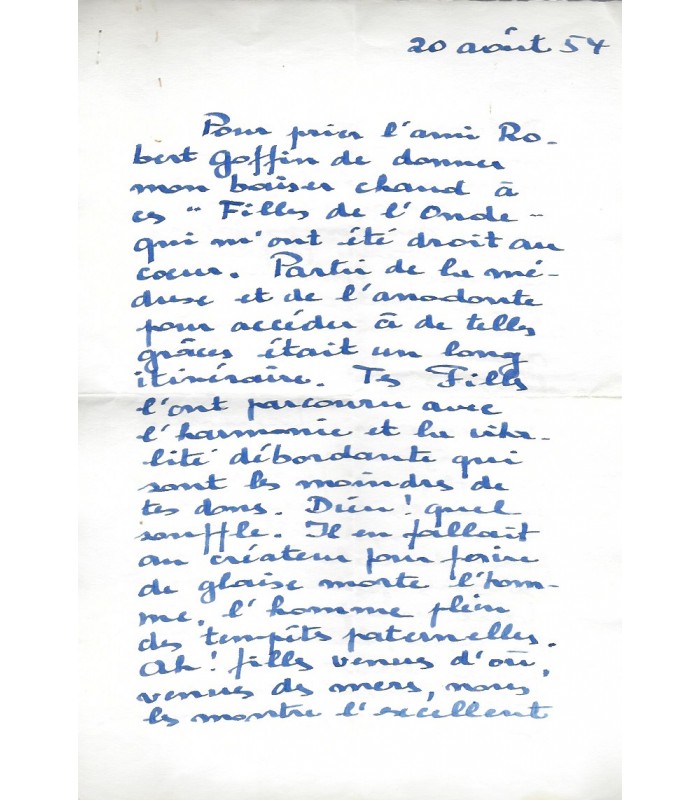 20 août 54
Pour prier l'ami Ro-
bert Goffin de donner
mon baiser chaud à
ces " Filles de l'Onde "
qui m'ont été droit au
coeur. Partir de la mé-
duse et de l'anodonte
pour accéder à de telles
grâces était un long
itinéraire. Tes Filles
l'ont parcouru avec
l'harmonie et la vita-
lité débordante qui
sont les moindres de
tes dons. Dieu ! quel
souffle. Il en fallait
au créateur pour faire
de glaise morte l'hom-
me, l'homme plein
des tempêtes paternelles.
Ah ! filles venues d'où,
venues des mers, nous
les montre l'excellent